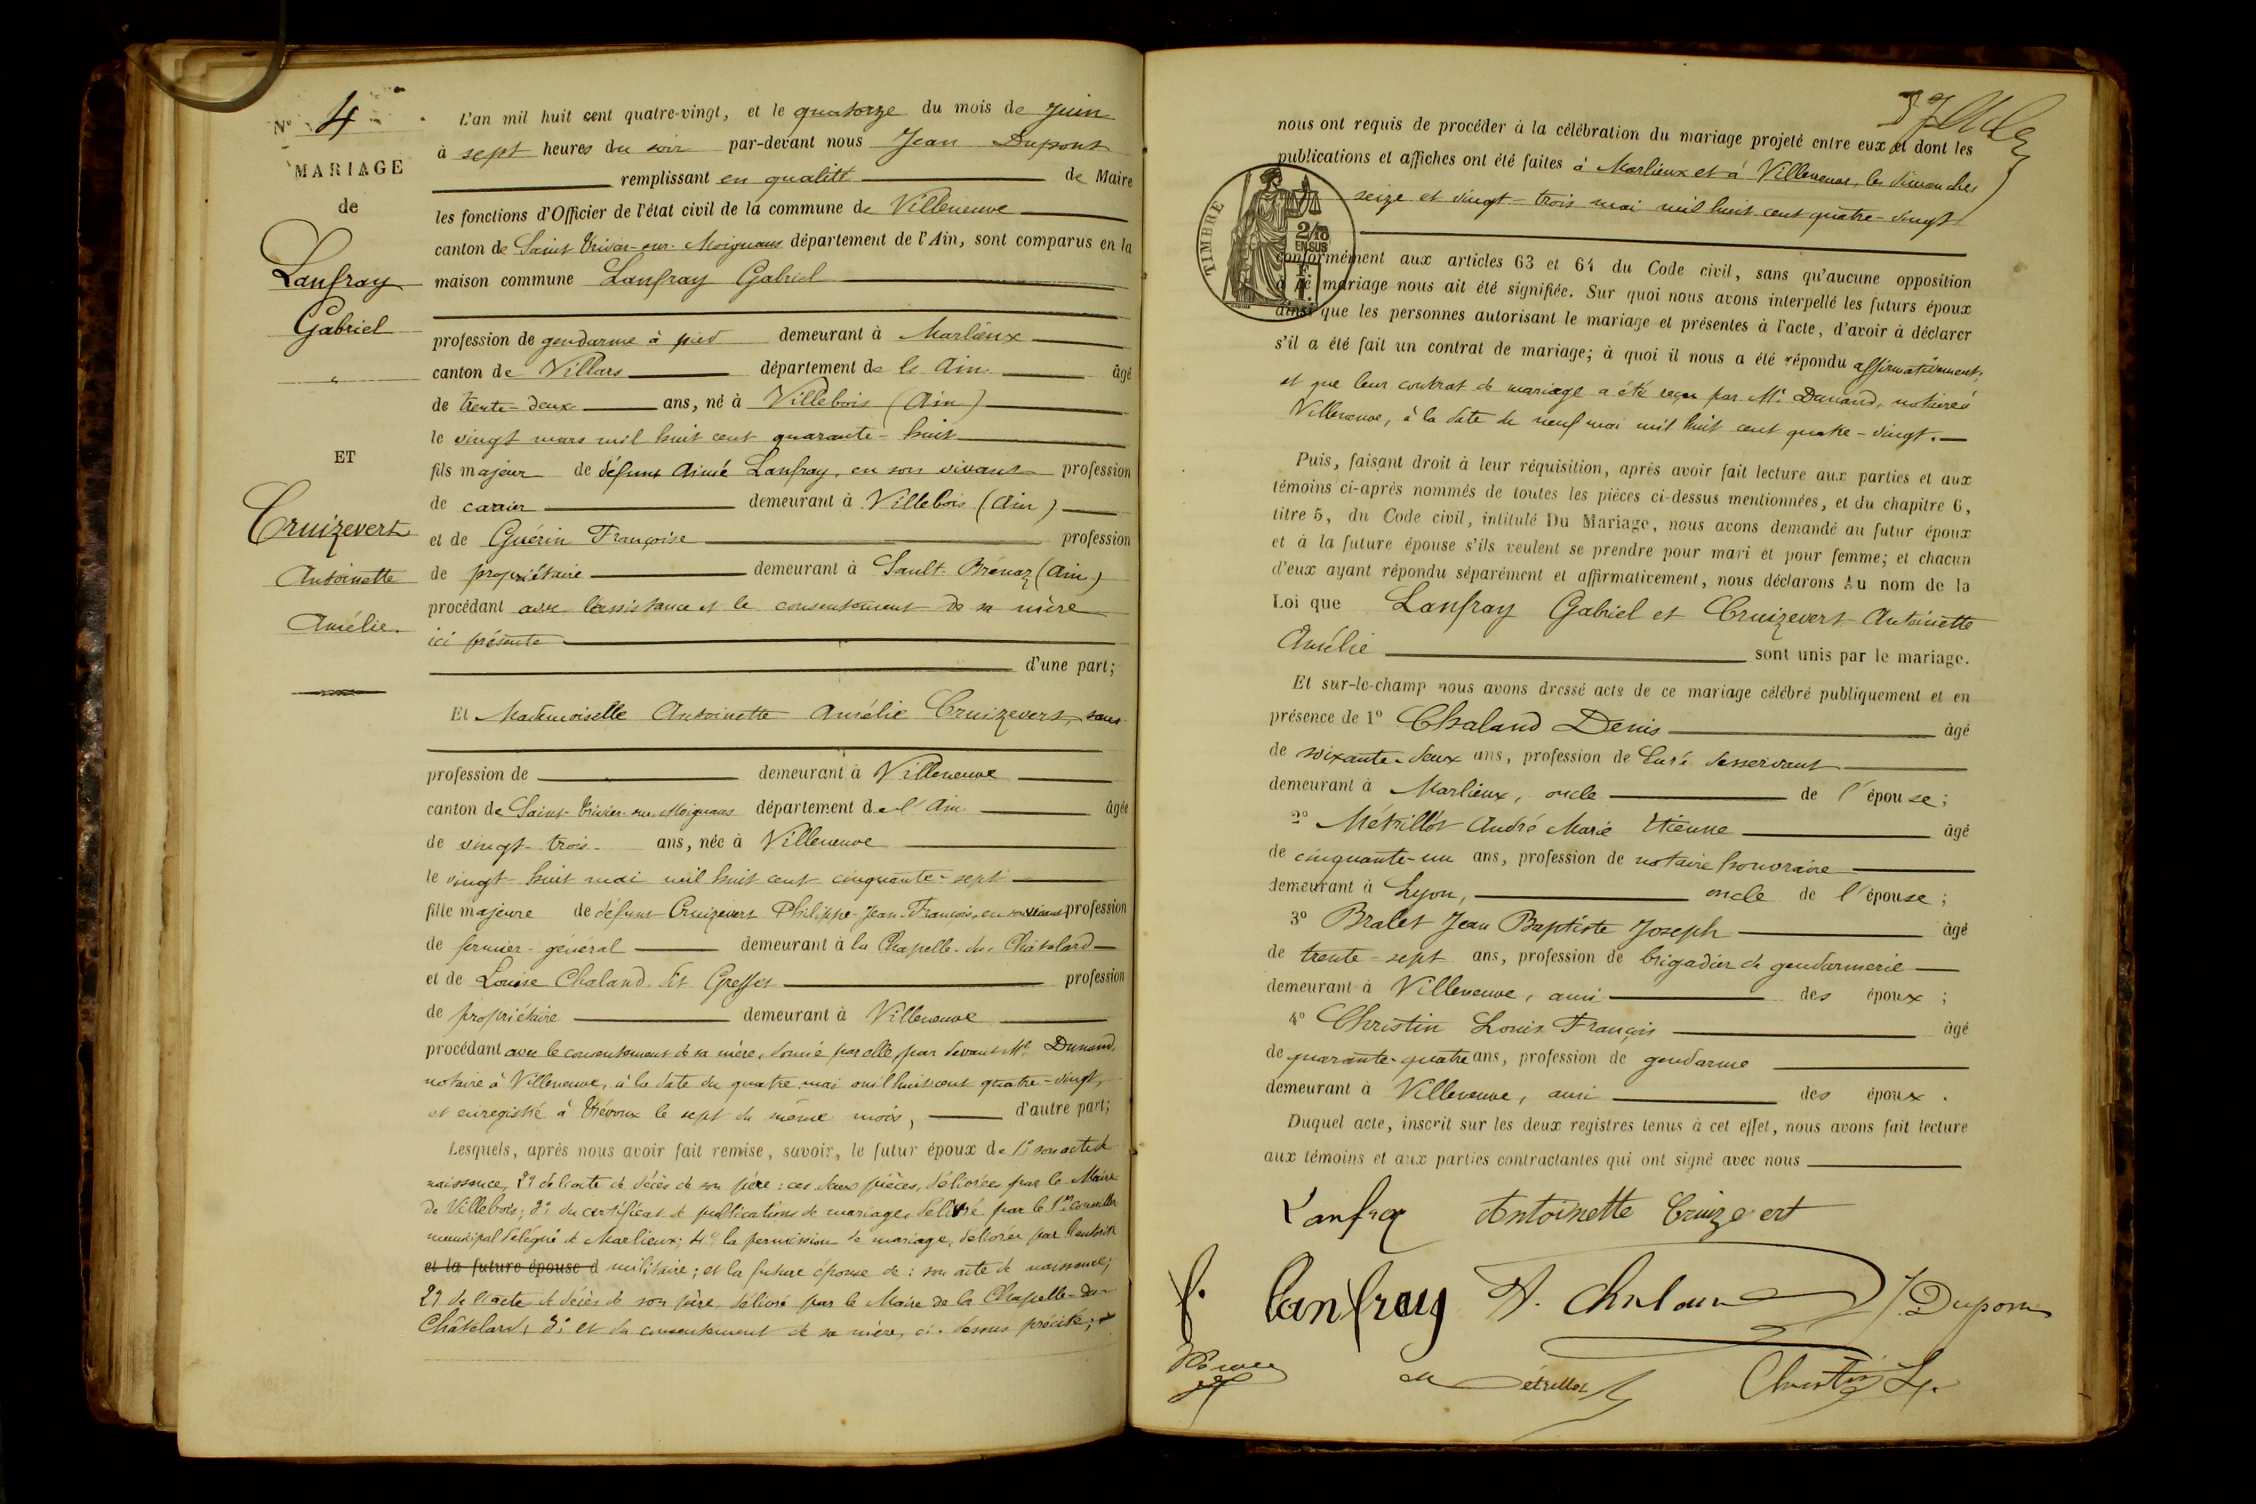 N° 4
MARIAGE
de
Lanfray
Gabriel
ET
Cruizevert
Antoinette
Amélie.
L'an mil huit cent quatre-vingt, et le quatorze du mois de Juin
à sept heures du soir par-devant nous Jean Dupont
remplissant en qualité de Maire
les fonctions d'Officier de l'état civil de la commune de Villeneuve
canton de Saint Trivier-sur-Moignans département de l'Ain, sont comparus en la
maison commune Lanfray Gabriel
profession de gendarme à pied demeurant à Marlieux
canton de Villars département de l' Ain âgé
de trente-deux ans, né à Villebois (Ain)
le vingt mars mil huit cent quarante-huit
fils majeur de défunt Aimé Lanfray, en son vivant profession
de carrier demeurant à Villebois (Ain)
et de Guérin Françoise profession
de propriétaire demeurant à Sault-Brénaz (Ain)
procédant avec l'assistance et le consentement de sa mère
ici présente
d'une part;
Et Mademoiselle Antoinette Amélie Cruizevert, sans
profession de demeurant à Villeneuve
canton de Saint-Trivier-sur-Moignans département de l'Ain âgée
de vingt-trois ans, née à Villeneuve
le vingt-huit mai mil huit cent cinquante-sept
fille majeure de défunt Cruizevert Philippe-Jean-François, en son vivant profession
de fermier-général demeurant à la Chapelle-du-Châtelard
et de Louise Chaland dit Greffet profession
de propriétaire demeurant à Villeneuve
procédant avec le consentement de sa mère, donné par elle, par devant Me Dunand,
notaire à Villeneuve, à la date du quatre mai mil huit cent quatre-vingt,
et enregistré à Trévoux le sept du même mois, d'autre part;
Lesquels, après nous avoir fait remise, savoir, le futur époux de 1° son acte de
naissance, 2° de l'acte de décès de son père: ces deux pièces, délivrées par le Maire
de Villebois; 3° du certificat de publications de mariage, délivré par le 1er conseiller
municipal délégué de Marlieux; 4° la permission de mariage, délivrée par l'autorité
et la future épouse d militaire; et la future épouse de: son acte de naissance;
2° de l'acte de décès de son père, délivré par le Maire de la Chapelle-du-
Châtelard; 3° et du consentement de sa mère, ci-dessus précité;
nous ont requis de procéder à la célébration du mariage projeté entre eux et dont les
publications et affiches ont été faites à Marlieux et à Villeneuve, les dimanches
seize et vingt-trois mai mil huit cent quatre-vingt
TIMBRE
2/10
EN SUS
conformément aux articles 63 et 64 du Code civil, sans qu'aucune opposition
à ce mariage nous ait été signifiée. Sur quoi nous avons interpellé les futurs époux
ainsi que les personnes autorisant le mariage et présentes à l'acte, d'avoir à déclarer
s'il a été fait un contrat de mariage; à quoi il nous a été répondu affirmativement,
et que leur contrat de mariage a été reçu par Me Dunand, notaire à
Villeneuve, à la date du neuf mai mil huit cent quatre-vingt.
Puis, faisant droit à leur réquisition, après avoir fait lecture aux parties et aux
témoins ci-après nommés de toutes les pièces ci-dessus mentionnées, et du chapitre 6,
titre 5, du Code civil, intitulé Du Mariage, nous avons demandé au futur époux
et à la future épouse s'ils veulent se prendre pour mari et pour femme; et chacun
d'eux ayant répondu séparément et affirmativement, nous déclarons Au nom de la
Loi que Lanfray Gabriel et Cruizevert Antoinette
Amélie sont unis par le mariage.
Et sur-le-champ nous avons dressé acte de ce mariage célébré publiquement et en
présence de 1° Chaland Denis âgé
de soixante-deux ans, profession de Curé desservant
demeurant à Marlieux, oncle de l'épouse;
2° Métrillot André Marie Etienne âgé
de cinquante-un ans, profession de notaire honoraire
demeurant à Lyon, oncle de l'épouse;
3° Bralet Jean Baptiste Joseph âgé
de trente-sept ans, profession de brigadier de gendarmerie
demeurant à Villeneuve, ami des époux;
4° Christin Louis François âgé
de quarante-quatre ans, profession de gendarme
demeurant à Villeneuve, ami des époux.
Duquel acte, inscrit sur les deux registres tenus à cet effet, nous avons fait lecture
aux témoins et aux parties contractantes qui ont signé avec nous
Antoinette Cruizevert
Lanfray D. Chaland J. Dupont
Métrillot Christin L.